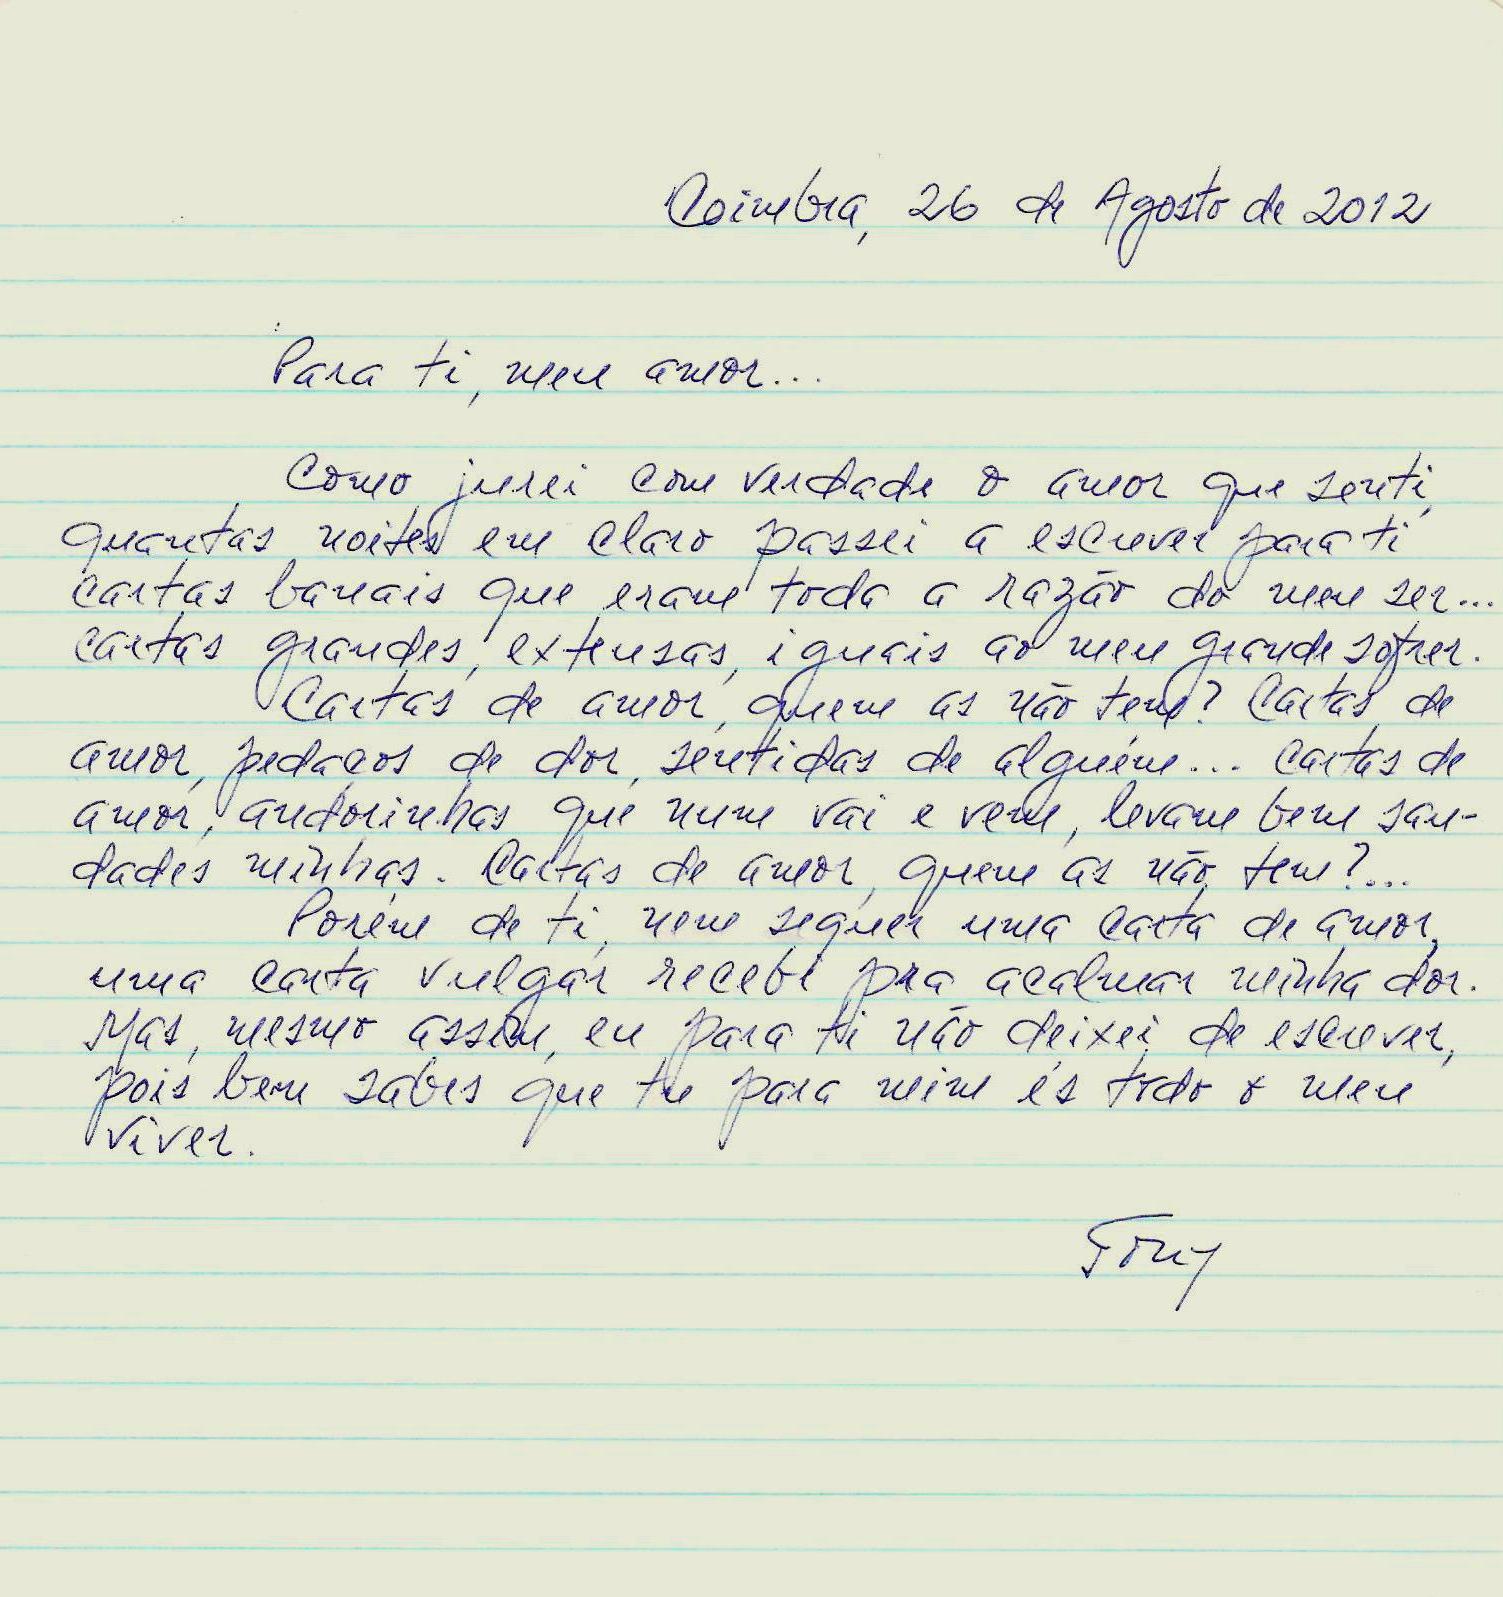 Coimbra, 26 de Agosto de 2012
Para ti, meu amor...
Como jurei com verdade o amor que senti,
quantas noites em claro passei a escrever para ti
cartas banais que eram toda a razão do meu ser...
cartas grandes, extensas, iguais ao meu grande sofrer.
Cartas de amor, quem as não tem? Cartas de
amor, pedaços de dor, sentidas de alguém... Cartas de
amor, andorinhas que num vai e vem, levam bem sau-
dades minhas. Cartas de amor, quem as não tem?...
Porém de ti, nem sequer uma carta de amor,
uma carta vulgar recebi pra acalmar minha dor.
Mas, mesmo assim, eu para ti não deixei de escrever,
pois bem sabes que tu para mim és todo o meu
viver.
Tony